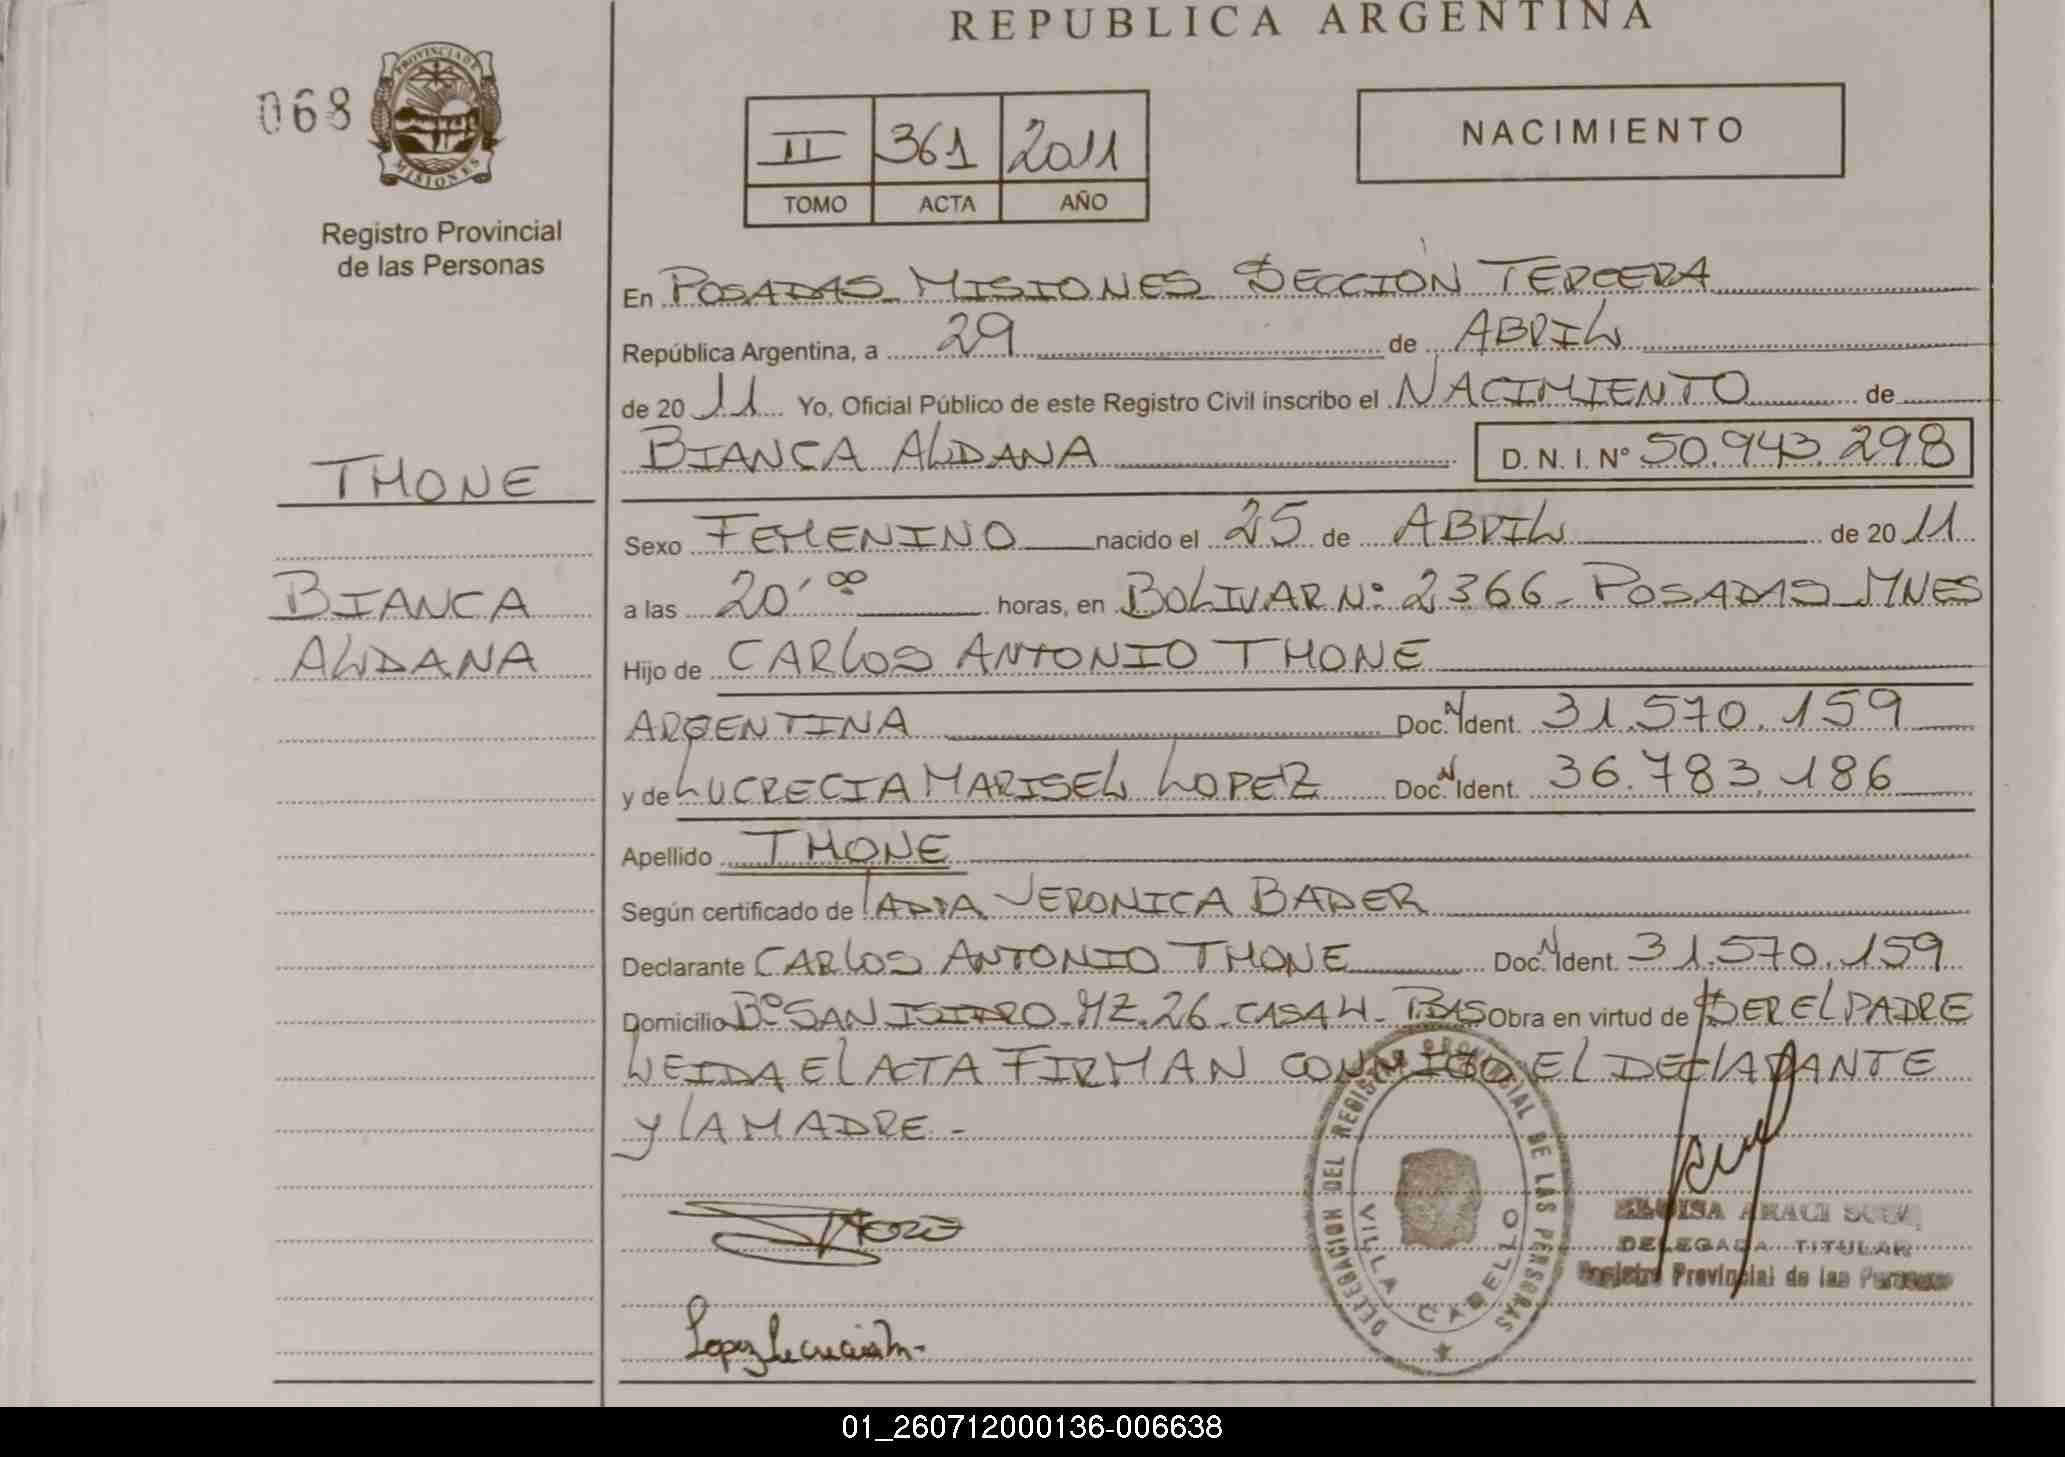 REPUBLICA ARGENTINA
068
PROVINCIA DE
MISIONES
Registro Provincial
de las Personas
II 361 2011
TOMO ACTA AÑO
NACIMIENTO
En POSADAS MISIONES SECCION TERCERA
República Argentina, a 29 de ABRIL
de 2011 Yo, Oficial Público de este Registro Civil inscribo el NACIMIENTO de
BIANCA ALDANA D. N. I. Nº 50.943.298
THONE
BIANCA
ALDANA
Sexo FEMENINO nacido el 25 de ABRIL de 2011
a las 20'00 horas, en BOLIVAR Nº 2366 - POSADAS MNES
Hijo de CARLOS ANTONIO THONE
ARGENTINA Doc. N Ident. 31.570.159
y de LUCRECIA MARISEL LOPEZ Doc. N Ident. 36.783.186
Apellido THONE
Según certificado de VERONICA BADER
Declarante CARLOS ANTONIO THONE Doc. N Ident. 31.570.159
Domicilio Bº SAN ISIDRO - MZ. 26 - CASA 4 - Obra en virtud de SER EL PADRE
LEIDA EL ACTA FIRMAN CONMIGO EL DECLARANTE
Y LA MADRE -
DELEGACION DEL REGISTRO PROVINCIAL DE LAS PERSONAS
VILLA CABELLO
DELEGADA TITULAR
Registro Provincial de las Personas
01_260712000136-006638